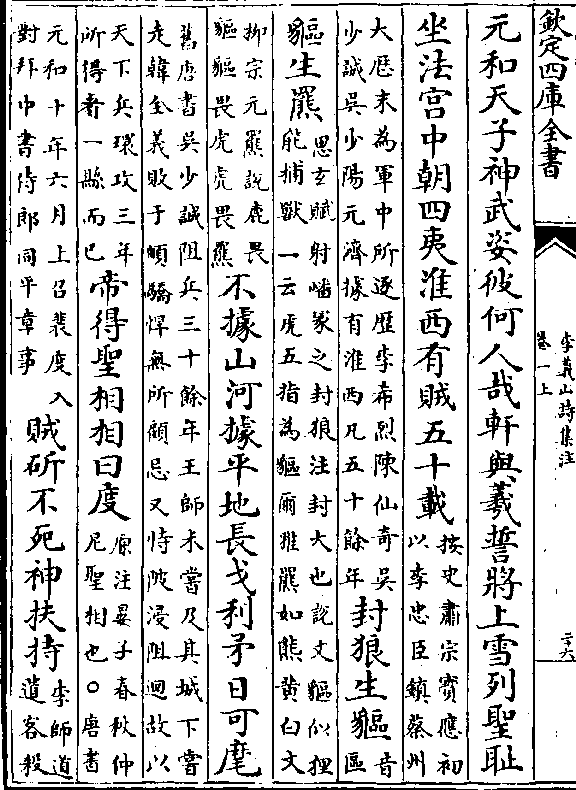 欽定四庫全書
李義山詩集注
卷一上
二六
元和天子神武姿彼何人哉軒與羲誓將上雪列聖恥
坐法宫中朝四夷淮西有賊五十載
按史肅宗寳應初
以李忠臣鎮蔡州
大歴末為軍中所逐歴李希烈陳仙奇吳
少誠吳少陽元濟據有淮西凡五十餘年
封狼生貙
音
區
貙生羆
思玄賦射嶓冡之封狼注封大也説文貙似狸
能捕獸一云虎五指為貙爾雅羆如熊黄白文
栁宗元羆説鹿畏
貙貙畏虎虎畏羆
不據山河據平地長戈利矛日可麾
舊唐書吳少誠阻兵三十餘年王師未嘗及其城下嘗
走韓全義敗于頔驕悍無所顧忌又恃陂浸阻廻故以
天下兵環攻三年
所得者一縣而已
帝得聖相相曰度
原注晏子春秋仲
尼聖相也○唐書
元和十年六月上召裴度入
對拜中書侍郎同平章事
賊斫不死神扶持
李師道
遣客殺